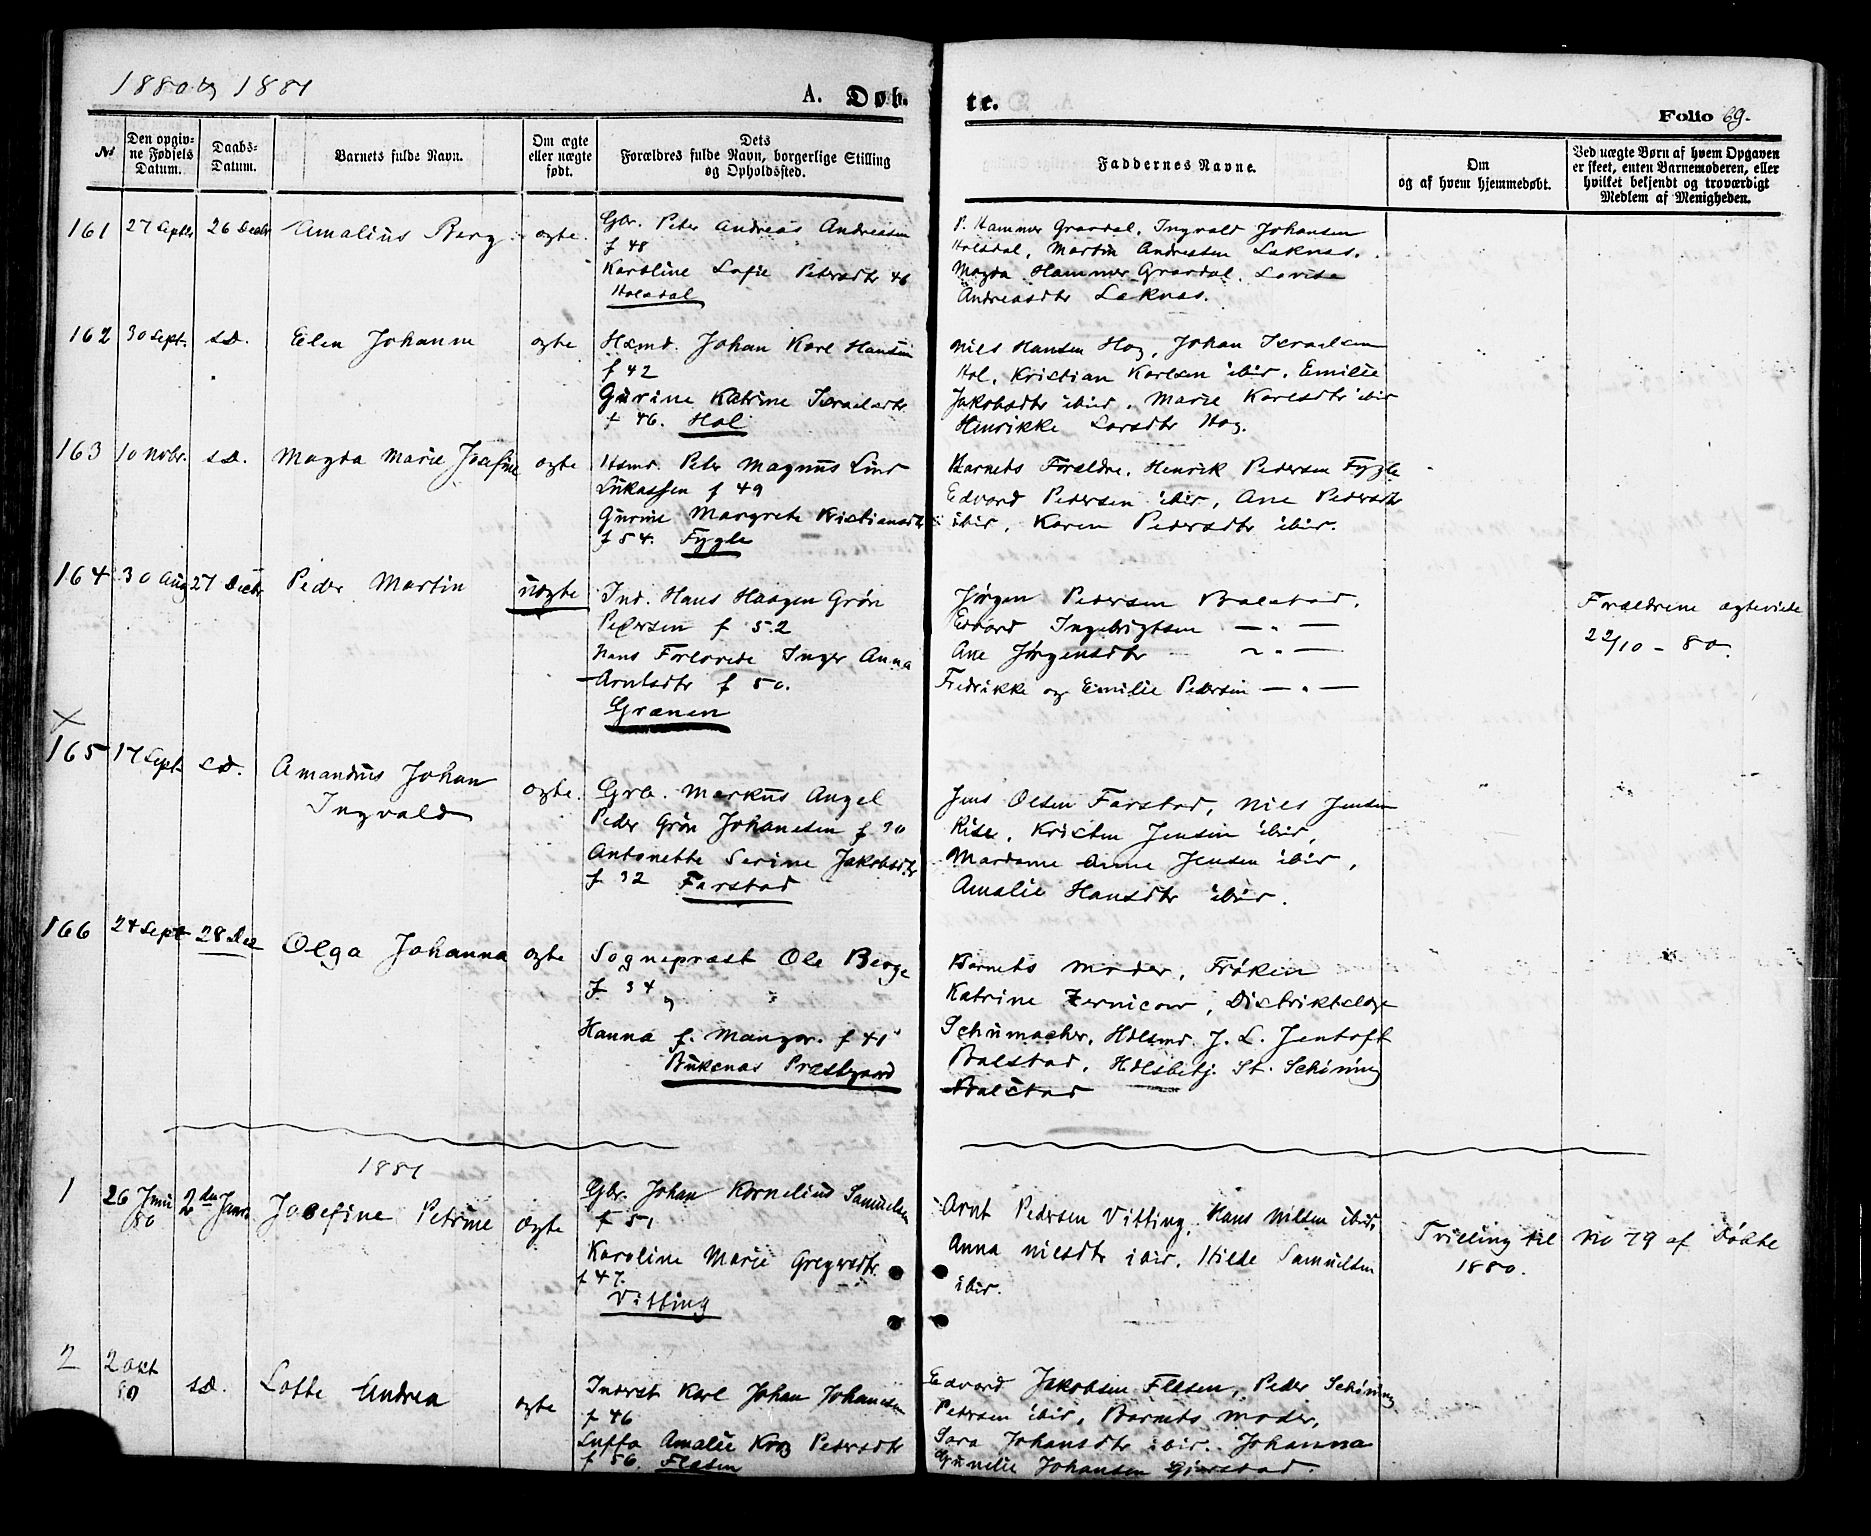 1880 og 1881
A. Døb-
te.
Folio 69.
No
Den opgiv-
ne Fødsels
Datum.
Daabs-
Datum.
Barnets fulde Navn.
Om ægte
eller uægte
født.
Dets
Forældres fulde Navn, borgerlige Stilling
og Opholdssted.
Faddernes Navne.
Om
og af hvem hjemmedøbt.
Ved uægte Børn af hvem Opgaven
er skeet, enten Barnemoderen, eller
hvilket bekjendt og troværdigt
Medlem af Menigheden.
161 27 Septbr 26 Decbr Amalius Berg ægte.
Gbr. Peter Andreas Andreasen
f 48
Karoline Sofie Petersdtr 46
Holsdal
P. Hammer Graadal, Ingvald Johansen
Holsdal, Martin Andreasen Leknes.
Magda Hammer Graadal, Lovise
Andreasdtr Leknes.
162 30 Sept. s.D. Elen Johanne ægte
Hsmd. Johan Karl Hansen
f 42
Gurine Katrine Israelsdtr
f 46. Hol
Nils Hansen Hag, Johan Israelsen
Hol, Kristian Karlsen ibid, Emilie
Jakobsdtr ibid, Marie Karlsdtr ibid
Henrikke Larsdtr Hag.
163 10 Nobr. s.D. Magda Marie Josefine ægte
Hsmd. Peter Magnus Lind
Lukassen f 49
Gurine Margrete Kristiansdtr
f 54. Fygle
Barnets Forældre, Henrik Pedersen Fygle
Edvard Pedersen ibid, Ane Pedersdtr
ibid, Karen Pedersdtr ibid.
164 30 Aug 27 Decbr Peder Martin uægte
Ind. Hans Haagen Grøn
Pedersen f 52
Hans Forlovede Inger Anna
Arntsdtr f 50.
Grænen
Jørgen Pedersen Balstad,
Edvard Ingebrigtsen — " —
Ane Jørgensdtr — " —
Fredrikke og Emilie Pedersen — " —
Forældrene ægteviede
22/10 - 80.
165 17 Sept. s.D. Amandus Johan
Ingvald
ægte.
Grb. Markus Angel
Peder Grøn Johansen f 30
Antonette Serine Jakobsdtr
f 32 Farstad
Jens Olsen Farstad, Nils Jensen
Rise, Kristen Jensen ibid,
Madame Anne Jensen ibid,
Amalie Hansdtr ibid.
166 24 Sept 28 Dec Olga Johanna ægte
Sognepræst Ole Berge
f. 34
Hanna f. Manger. f 41
Buksnes Præstgaard
Barnets Moder, Frøken
Katrine Zernicow, Distriktslæge
Schumacher, Hdlsmd J. L. Jentoft
Balstad, Hdlsbetj. St. Schøning
Balstad
1881
1 26 Juni
80
2den Janr Josefine Petrine ægte
Gbr. Johan Kornelius Samuelsen
f 51
Karoline Marie Gregersdtr
f 47.
Vitting
Arnt Pedersen Vitting, Hans Nilsen ibid,
Anna Nilsdtr ibid, Hilde Samuelsen
ibid.
Tvilling til No 79 af Døbte
1880.
2 2 Okt
80
s.D. Lotte Andrea ægte
Inderst Karl Johan Johansen
f 46
Luffa Amalie Krog Pedersdtr
f 56. Flæsen
Edvard Jakobsen Flæsen, Peder Schøning
Petersen ibid, Barnets Moder,
Sara Johansdtr ibid. Johanna
Gunelie Johansen Gjerstad.